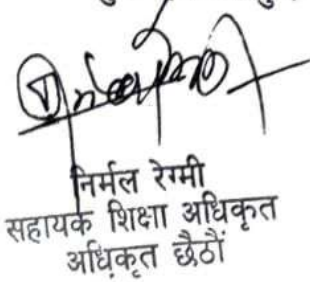 निर्मल रेग्मी
सहायक शिक्षा अधिकृत
अधिकृत छैठौं